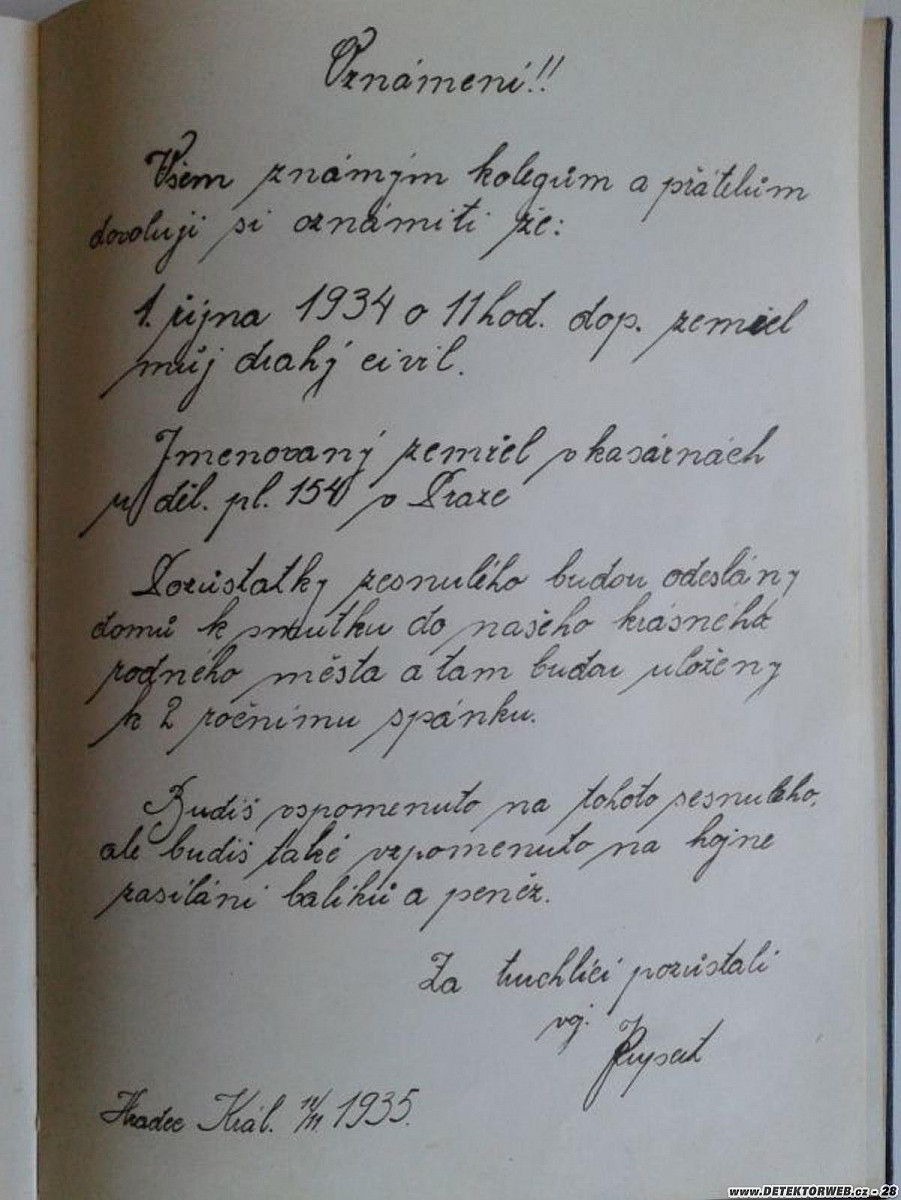 Oznámení!!
Všem známým kolegům a přátelům
dovoluji si oznámiti že:
1. října 1934 o 11 hod. dop. zemřel
můj drahý civil.
Jmenovaný zemřel v kasárnách
u děl. pl. 154 v Praze
Pozůstatky zesnulého budou odeslány
domů k smutku do našeho krásného
rodného města a tam budou uloženy
k 2 ročnímu spánku.
Budiš vspomenuto na tohoto sesnulého,
ale budiš také vzpomenuto na hojné
zasílání balíků a peněz.
Za truchlící pozůstalí
voj.
Hradec Král. 1935.
www.DETEKTORWEB.cz - 28